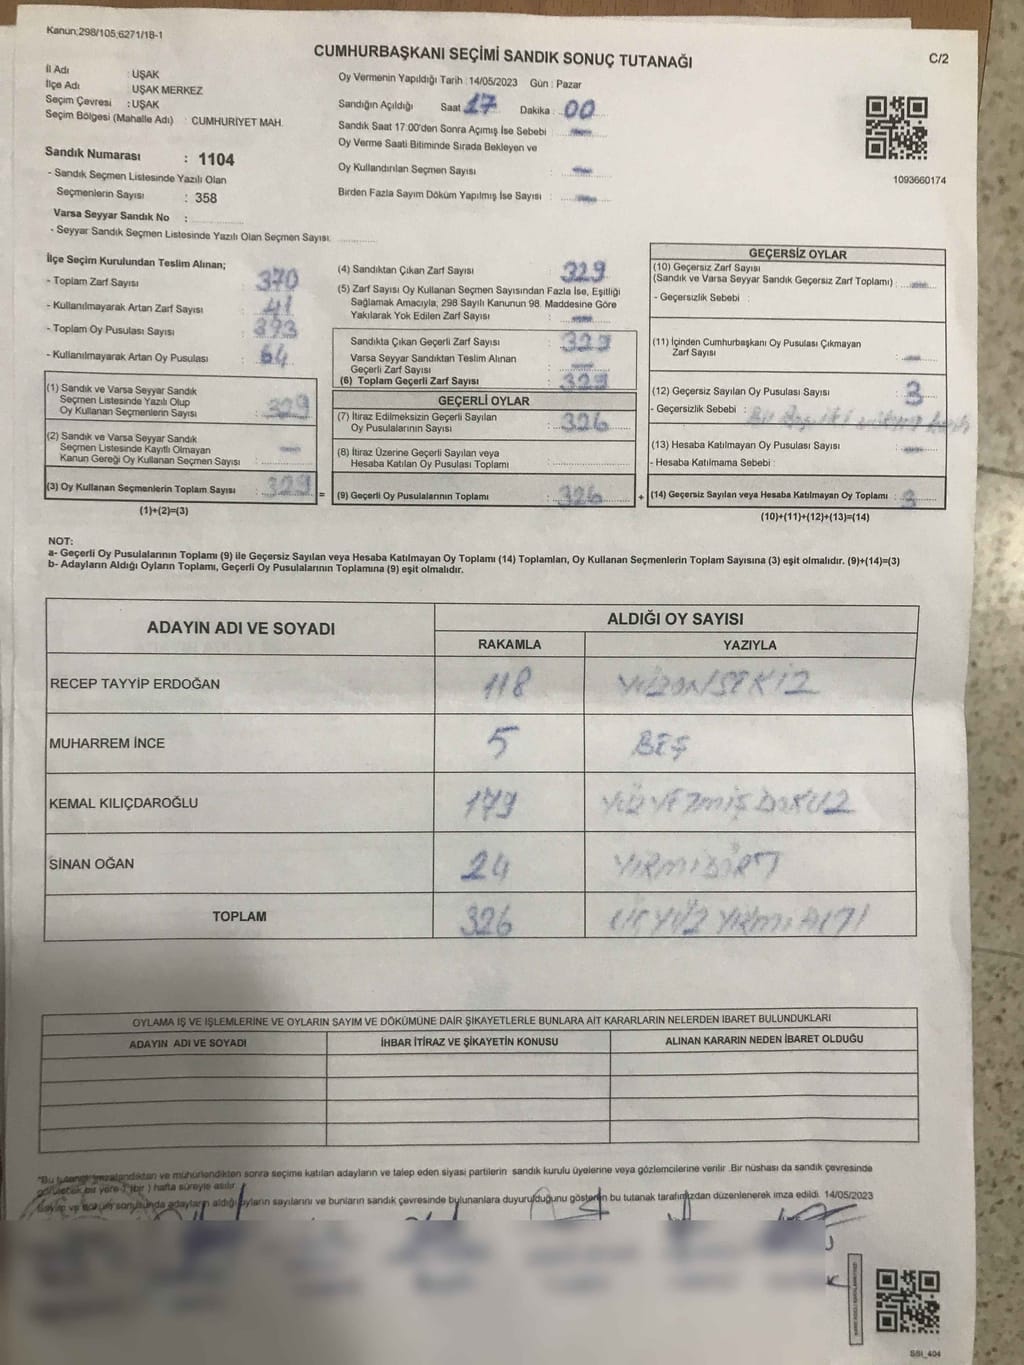 Kanun;298/105;6271/18-1
CUMHURBAŞKANI SEÇİMİ SANDIK SONUÇ TUTANAĞI
C/2
İl Adı : UŞAK
İlçe Adı : UŞAK MERKEZ
Seçim Çevresi : UŞAK
Seçim Bölgesi (Mahalle Adı) : CUMHURİYET MAH.
Sandık Numarası : 1104
- Sandık Seçmen Listesinde Yazılı Olan
Seçmenlerin Sayısı : 358
Varsa Seyyar Sandık No :
- Seyyar Sandık Seçmen Listesinde Yazılı Olan Seçmen Sayısı:
Oy Vermenin Yapıldığı Tarih : 14/05/2023 Gün : Pazar
Sandığın Açıldığı Saat 17 Dakika : 00
Sandık Saat 17:00'den Sonra Açımış İse Sebebi :
Oy Verme Saati Bitiminde Sırada Bekleyen ve
Oy Kullandırılan Seçmen Sayısı :
Birden Fazla Sayım Döküm Yapılmış İse Sayısı :
1093660174
İlçe Seçim Kurulundan Teslim Alınan;
- Toplam Zarf Sayısı : 370
- Kullanılmayarak Artan Zarf Sayısı : 41
- Toplam Oy Pusulası Sayısı : 393
- Kullanılmayarak Artan Oy Pusulası : 64
(1) Sandık ve Varsa Seyyar Sandık
Seçmen Listesinde Yazılı Olup
Oy Kullanan Seçmenlerin Sayısı : 329
(2) Sandık ve Varsa Seyyar Sandık
Seçmen Listesinde Kayıtlı Olmayan
Kanun Gereği Oy Kullanan Seçmen Sayısı :
(3) Oy Kullanan Seçmenlerin Toplam Sayısı : 329
(1)+(2)=(3)
(4) Sandıktan Çıkan Zarf Sayısı : 329
(5) Zarf Sayısı Oy Kullanan Seçmen Sayısından Fazla İse, Eşitliği
Sağlamak Amacıyla, 298 Sayılı Kanunun 98. Maddesine Göre
Yakılarak Yok Edilen Zarf Sayısı :
Sandıkta Çıkan Geçerli Zarf Sayısı : 329
Varsa Seyyar Sandıktan Teslim Alınan
Geçerli Zarf Sayısı :
(6) Toplam Geçerli Zarf Sayısı : 329
GEÇERLİ OYLAR
(7) İtiraz Edilmeksizin Geçerli Sayılan
Oy Pusulalarının Sayısı : 326
(8) İtiraz Üzerine Geçerli Sayılan veya
Hesaba Katılan Oy Pusulası Toplamı :
= (9) Geçerli Oy Pusulalarının Toplamı : 326
GEÇERSİZ OYLAR
(10) Geçersiz Zarf Sayısı
(Sandık ve Varsa Seyyar Sandık Geçersiz Zarf Toplamı) :
- Geçersizlik Sebebi :
(11) İçinden Cumhurbaşkanı Oy Pusulası Çıkmayan
Zarf Sayısı :
(12) Geçersiz Sayılan Oy Pusulası Sayısı : 3
- Geçersizlik Sebebi :
(13) Hesaba Katılmayan Oy Pusulası Sayısı :
- Hesaba Katılmama Sebebi :
+ (14) Geçersiz Sayılan veya Hesaba Katılmayan Oy Toplamı : 3
(10)+(11)+(12)+(13)=(14)
NOT:
a- Geçerli Oy Pusulalarının Toplamı (9) ile Geçersiz Sayılan veya Hesaba Katılmayan Oy Toplamı (14) Toplamları, Oy Kullanan Seçmenlerin Toplam Sayısına (3) eşit olmalıdır. (9)+(14)=(3)
b- Adayların Aldığı Oyların Toplamı, Geçerli Oy Pusulalarının Toplamına (9) eşit olmalıdır.
ADAYIN ADI VE SOYADI
ALDIĞI OY SAYISI
RAKAMLA YAZIYLA
RECEP TAYYİP ERDOĞAN 118 YÜZONSEKİZ
MUHARREM İNCE 5 BEŞ
KEMAL KILIÇDAROĞLU 179 YÜZYETMİŞDOKUZ
SİNAN OĞAN 24 YİRMİDÖRT
TOPLAM 326 ÜÇYÜZ YİRMİ ALTI
OYLAMA İŞ VE İŞLEMLERİNE VE OYLARIN SAYIM VE DÖKÜMÜNE DAİR ŞİKAYETLERLE BUNLARA AİT KARARLARIN NELERDEN İBARET BULUNDUKLARI
ADAYIN ADI VE SOYADI İHBAR İTİRAZ VE ŞİKAYETİN KONUSU ALINAN KARARIN NEDEN İBARET OLDUĞU
"Bu tutanağı imzalandıktan ve mühürlendikten sonra seçime katılan adayların ve talep eden siyasi partilerin sandık kurulu üyelerine veya gözlemcilerine verilir .Bir nüshası da sandık çevresinde
görülecek bir yere 1 (bir ) hafta süreyle asılır.
Sayım ve döküm sonucunda adayların aldığı oyların sayılarını ve bunların sandık çevresinde bulunanlara duyurulduğunu gösteren bu tutanak tarafımızdan düzenlenerek imza edildi. 14/05/2023
SSI_404